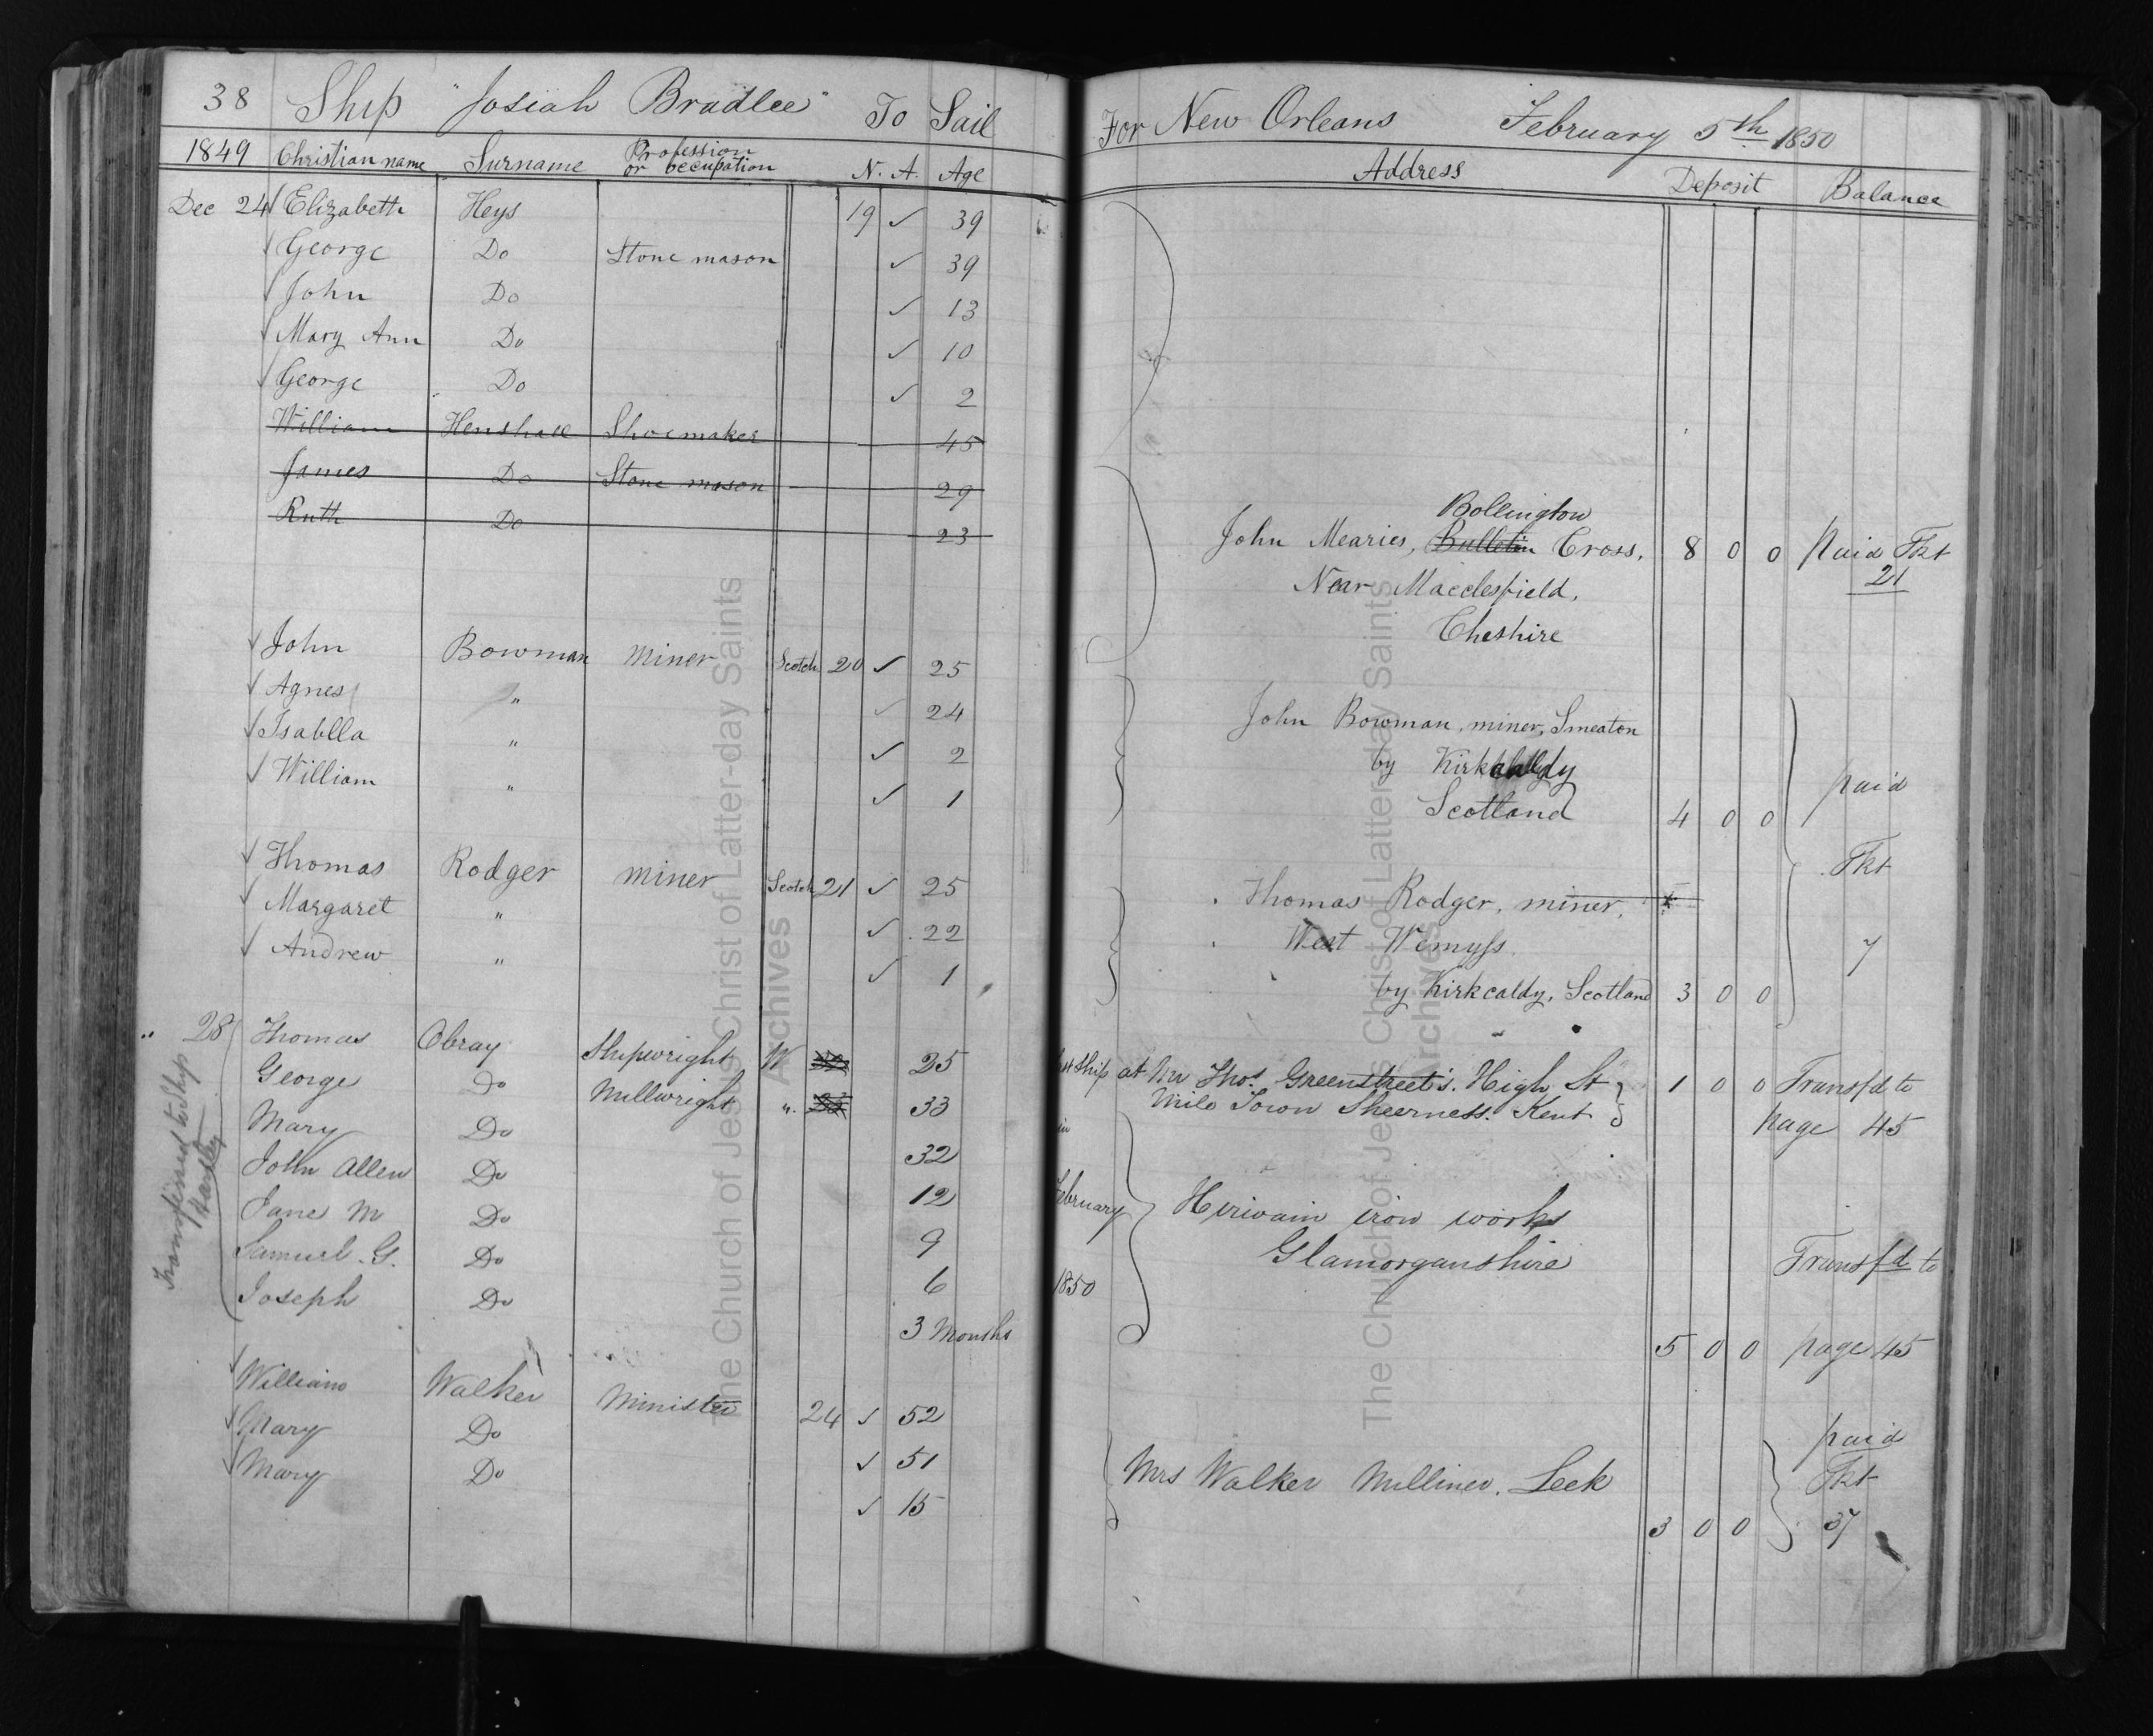 38 Ship "Josiah Bradlee" To Sail For New Orleans February 5th 1850
1849 Christian name Surname Profession or occupation N. A. Age Address Deposit Balance
Dec 24 Elizabeth Heys 19 ✓ 39
✓ George Do Stone mason ✓ 39
✓ John Do ✓ 13
✓ Mary Ann Do ✓ 10
✓ George Do ✓ 2
William Henshall Shoemaker 45
James Do Stone mason 29
Ruth Do 23
Bollington
John Mearies, Bulletin Cross, 8 0 0 paid Tkt
Near Macclesfield, 21
Cheshire
✓ John Bowman miner Scotch 20 ✓ 25
✓ Agnes " ✓ 24
✓ Isablla " ✓ 2
✓ William " ✓ 1
John Bowman, miner, Smeaton
by Kirkcaldy
Scotland 4 0 0 paid
✓ Thomas Rodger miner Scotch 21 ✓ 25
✓ Margaret " ✓ 22
✓ Andrew " ✓ 1
Thomas Rodger, miner, Tkt
West Wemyss 7
by Kirkcaldy, Scotland 3 0 0
" 28 Thomas Obray Shipwright W 25
George Do Millwright " 33
Mary Do 32
John Allen Do 12
Jane M Do 9
Samuel G. Do 6
Joseph Do 3 Months
Transferred to Ship Hartley
Ship at Mr Thos Greenstreet's. High St 1 0 0 Transfd to
Mile Town Sheerness. Kent page 45
in
February
1850
Hirwain iron works
Glamorganshire Transfd to
5 0 0 page 45
✓ William Walker Minister 24 ✓ 52
✓ Mary Do ✓ 51
✓ Mary Do ✓ 15
Mrs Walker Milliner. Leek paid
Tkt
3 0 0 37
The Church of Jesus Christ of Latter-day Saints
Archives
The Church of Jesus Christ of Latter-day Saints
Archives